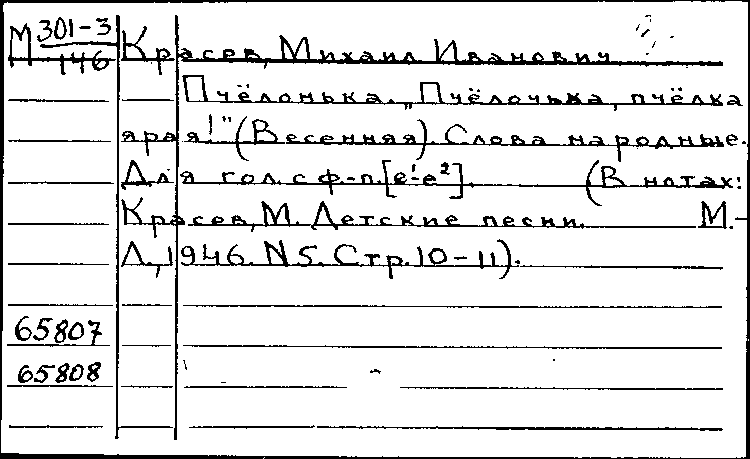 М 301-3
146
Красев, Михаил Иванович
Пчёлонька. „Пчёлочька, пчёлка
ярая!" (Весенняя). Слова народные.
Для гол. с ф.-п. [e¹-e²]. (В нотах:
Красев, М. Детские песни. М.-
Л., 1946. N 5. Стр. 10-11).
65807
65808